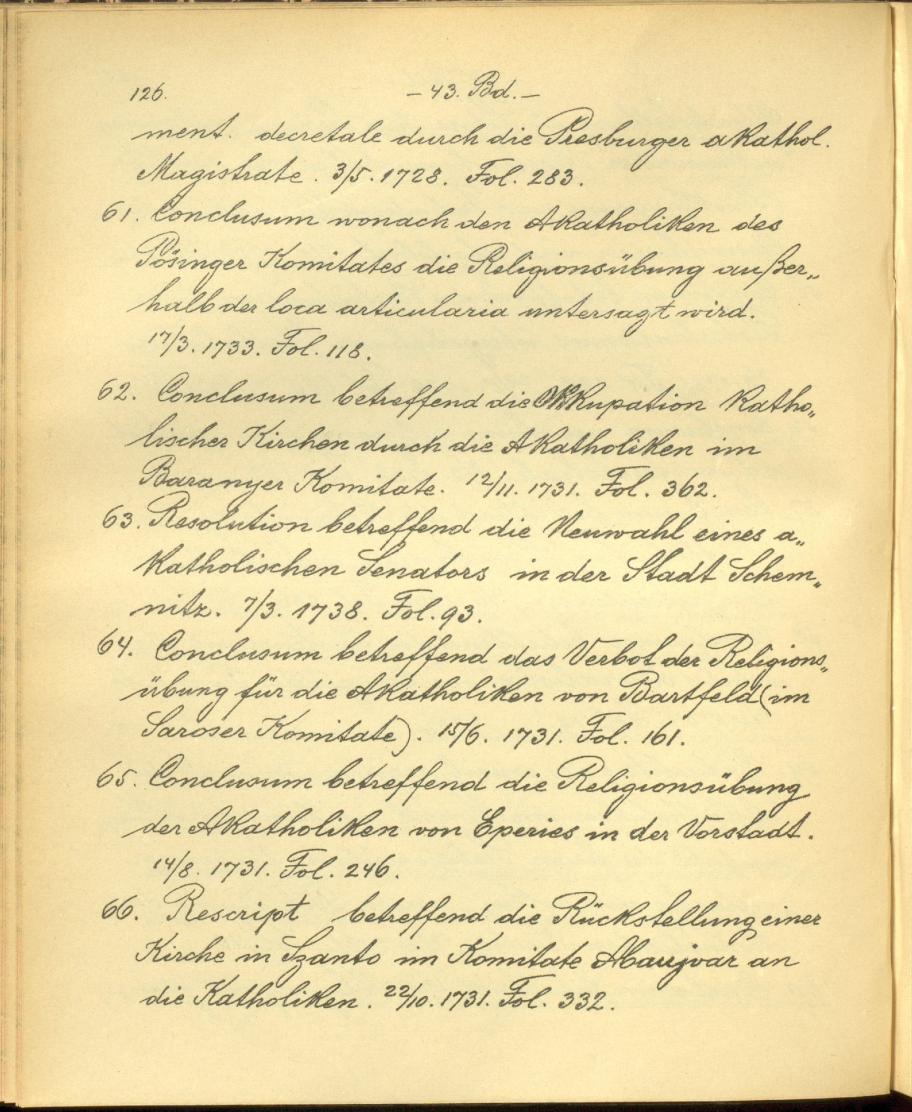 126. — 43. Bd. —
ment. decretale durch die Presburger akathol.
Magistrate. 3/5. 1728. Fol. 283.
61. Conclusum wonach den Akatholiken des
Pösinger Komitates die Religionsübung außer„
halb der loca articularia untersagt wird.
17/3. 1733. Fol. 118.
62. Conclusum betreffend die Okkupation katho„
lischer Kirchen durch die Akatholiken im
Baranyer Komitate. 12/11. 1731. Fol. 362.
63. Resolution betreffend die Neuwahl eines a„
katholischen Senators in der Stadt Schem„
nitz. 7/3. 1738. Fol. 93.
64. Conclusum betreffend das Verbot der Religions„
übung für die Akatholiken von Bartfeld (im
Saroser Komitate). 15/6. 1731. Fol. 161.
65. Conclusum betreffend die Religionsübung
der Akatholiken von Eperies in der Vorstadt.
14/8. 1731. Fol. 246.
66. Rescript betreffend die Rückstellung einer
Kirche in Szanto im Komitate Abaujvar an
die Katholiken. 22/10. 1731. Fol. 332.